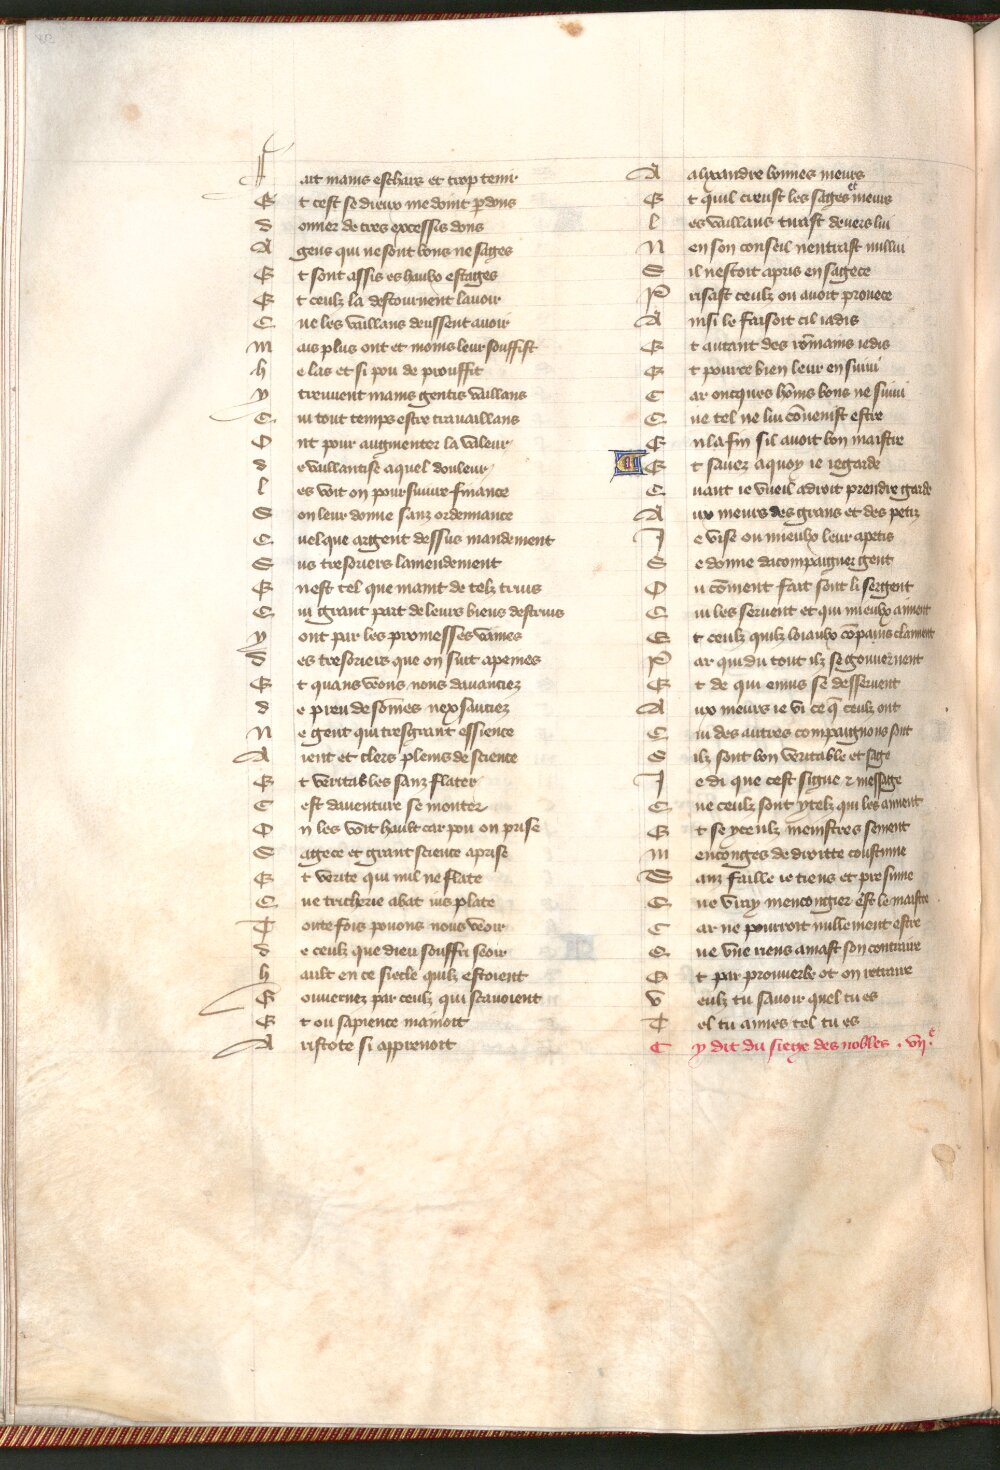 Fait mains eschars et trop tenir
Et cest se dieux me doint pdons
donner de tres excessis dons
A gens qui ne sont bons ne sages
Et sont assis es haulx estages
Et ceulz la destournent lauoir
Que les vaillans deussent auoir
mais plus ont et moins leur souffist
helas et si pou de prouffit
y treuuent mains gentis vaillans
Qui tout temps estre trauaillans
Ont pour augmenter la valeur
de vaillantise a quel douleur
les voit on poursuiure finance
Son leur donne sanz ordennance
Quelque argent dessus mandement
Sus tresoriers lamendement
En est tel que maint de telz truis
Qui grant part de leurs biens destruis
y ont par les promesses vaines
des tresoriers que on suit a peines
Et quans veons nous dauanciez
de preudesomes nexsauciez
Ne gent qui tresgrant essience
Aient et clers pleins de science
Et veritables sanz flater
Cest dauenture se monter
On les voit hault car pou on prise
Sagece et grant science aprise
Et verite qui nul ne flate
Que tricherie abat ius plate
Toutefois pouons nous veoir
de ceulz que dieu souffri seoir
hault en ce siecle quilz estoient
Gouuernez par ceulz qui scauoient
Et ou sapience manoit
Aristote si apprenoit
A alixandre bonnes meurs
Et quil creust les sages et meurs
les vaillans tirast deuers lui
N en son conseil nentrast nullui
Sil nestoit apris en sagece
Prisast ceulz ou auoit prouece
Ainsi le faisoit cil iadis
Et autant des rommains iedis
Et pource bien leur en suiui
Car oncques homs bons ne suiui
Que tel ne lui couenist estre
En la fin sil auoit bon maistre
Et sauez a quoy ie regarde
Quant ie vueil a droit prendre garde
Aux meurs des grans et des petiz
Je vise ou mieulx leur apetis
Se donne dacompaigner gent
Ou coment fait sont li sergent
Qui les seruent et qui mieulx aiment
Et ceulz quilz loiaulx copains claiment
Par qui du tout ilz se gouuernent
Et de qui enuis se desseruent
Aux meurs ie vi ce q ceulz ont
Qui des autres compaignons sont
Silz sont bon veritable et sage
Je di que cest signe & message
Que ceulz sont ytelz qui les aiment
Et se yceulz menistres sement
menconges de droitte coustume
Sanz faille ie tiens et presume
Que vray mencongier est le maistre
Car ne pourroit nullement estre
Que vne riens amast son contraire
Et par prouuerbe ot on retraire
Veulz tu sauoir quel tu es
Tel tu aimes tel tu es
Cy dit du siege des nobles . vije.